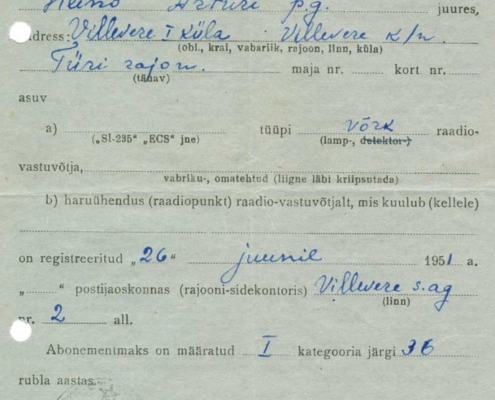 Heino Arturi p.g. juures,
dress: Villevere I küla Villevere k/n.
(obl., krai, vabariik, rajoon, linn, küla)
Türi rajoon. maja nr. kort nr.
(tänav)
asuv
a) tüüpi võrk raadio-
(„SI-235“ „ECS“ jne) (lamp-, detektor-)
vastuvõtja,
vabriku-, omatehtud (liigne läbi kriipsutada)
b) haruühendus (raadiopunkt) raadio-vastuvõtjalt, mis kuulub (kellele)
on registreeritud „26“ juunil 1951 a.
„ “ postijaoskonnas (rajooni-sidekontoris) Villevere s.ag
(linn)
nr. 2 all.
Abonementmaks on määratud I kategooria järgi 36
rubla aastas.